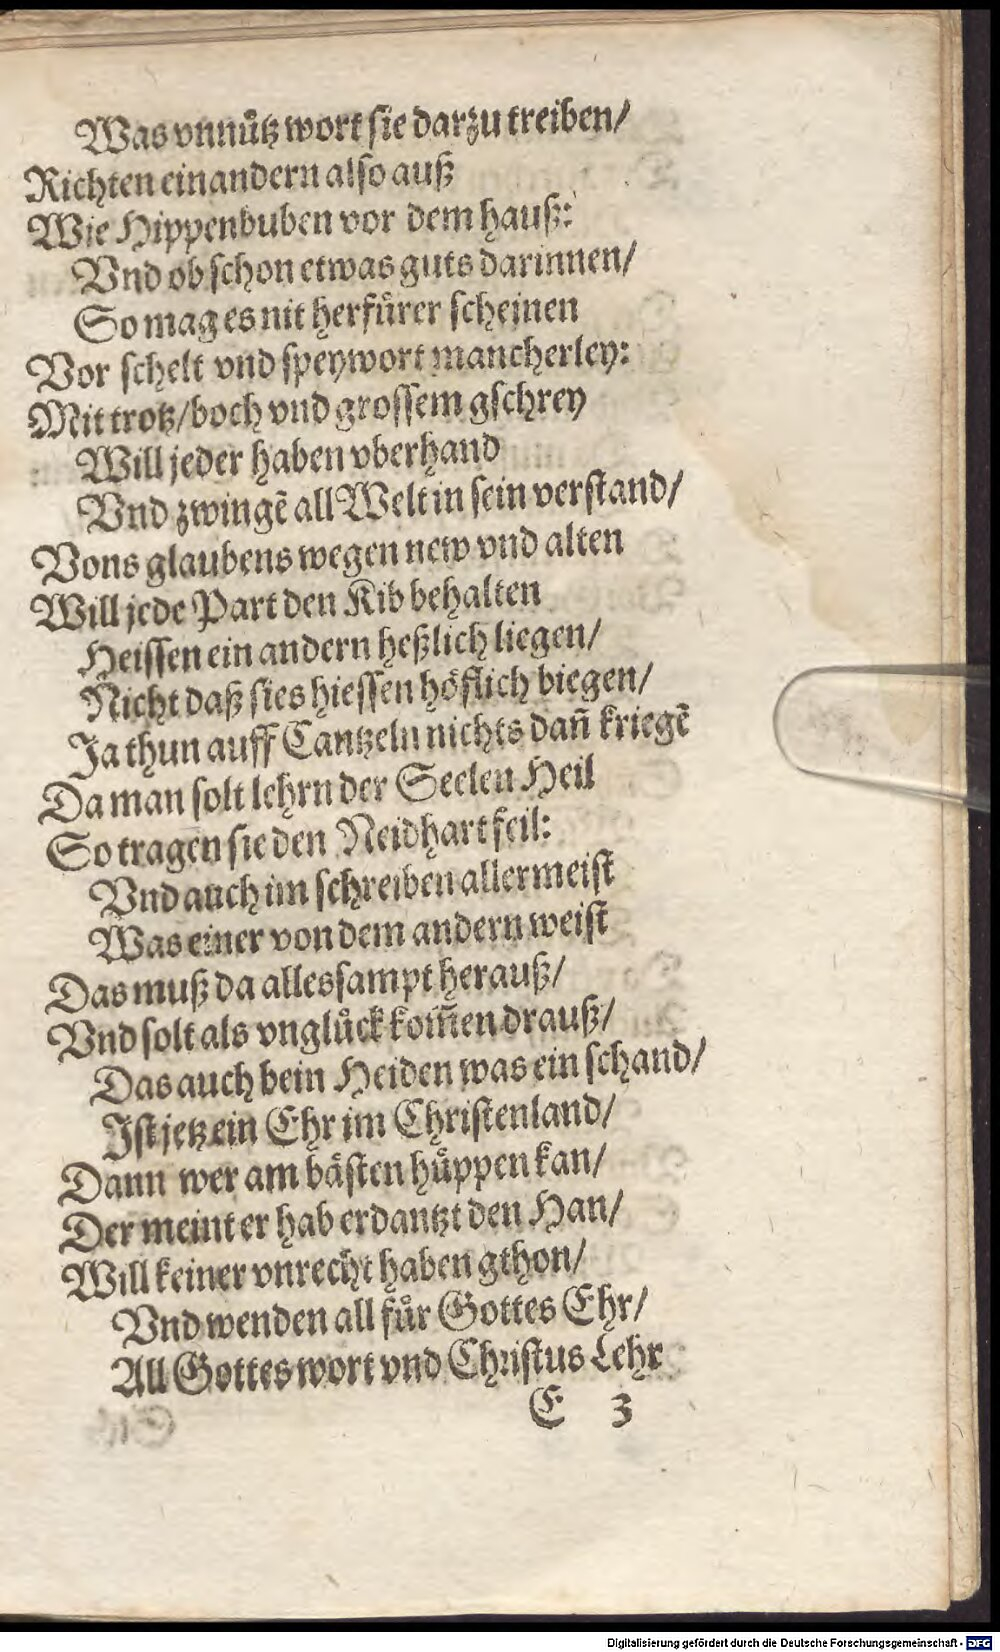 Was vnnuͤtz wort sie darzu treiben/
Richten einandern also auß
Wie Hippenbuben vor dem hauß:
Vnd ob schon etwas guts darinnen/
So mag es nit herfuͤrer scheinen
Vor schelt vnd speywort mancherley:
Mit trotz/boch vnd grossem gschrey
Will jeder haben vberhand
Vnd zwingẽ all Welt in sein verstand/
Vons glaubens wegen new vnd alten
Will jede Part den Kib behalten
Heissen ein andern heßlich liegen/
Nicht daß sies hiessen hoͤflich biegen/
Ja thun auff Cantzeln nichts dañ kriegẽ
Da man solt lehrn der Seelen Heil
So tragen sie den Neidhart feil:
Vnd auch im schreiben allermeist
Was einer von dem andern weist
Das muß da allessampt herauß/
Vnd solt als vngluͤck kom̃en drauß/
Das auch bein Heiden was ein schand/
Ist jetz ein Ehr im Christenland/
Dann wer am baͤsten huͤppen kan/
Der meint er hab erdantzt den Han/
Will keiner vnrecht haben gthon/
Vnd wenden all fuͤr Gottes Ehr/
All Gottes wort vnd Christus Lehr
E 3
Digitalisierung gefördert durch die Deutsche Forschungsgemeinschaft - DFG